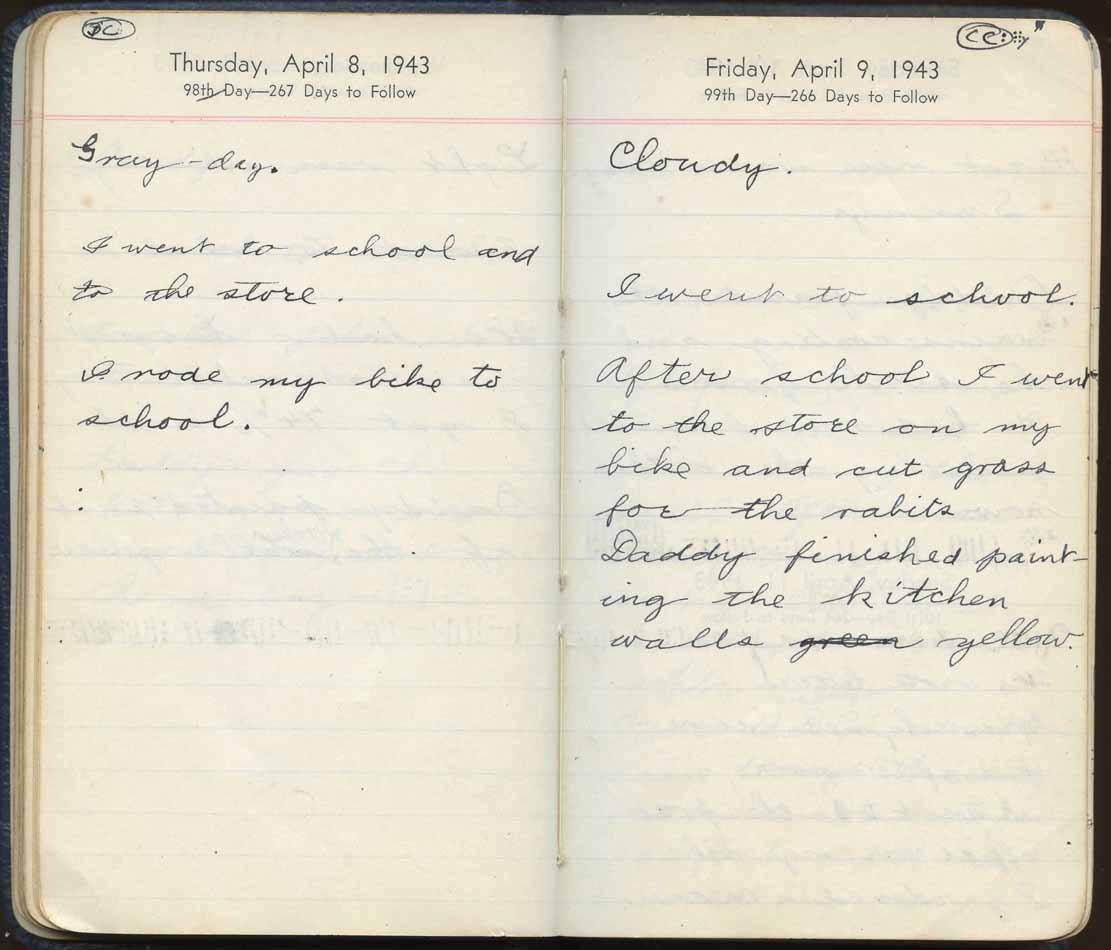 Thursday, April 8, 1943
98th Day—267 Days to Follow
Gray - day.
I went to school and
to the store.
I rode my bike to
school.
Friday, April 9, 1943
99th Day—266 Days to Follow
Cloudy.
I went to school.
After school I went
to the store on my
bike and cut grass
for the rabits
Daddy finished paint-
ing the kitchen
walls green yellow.